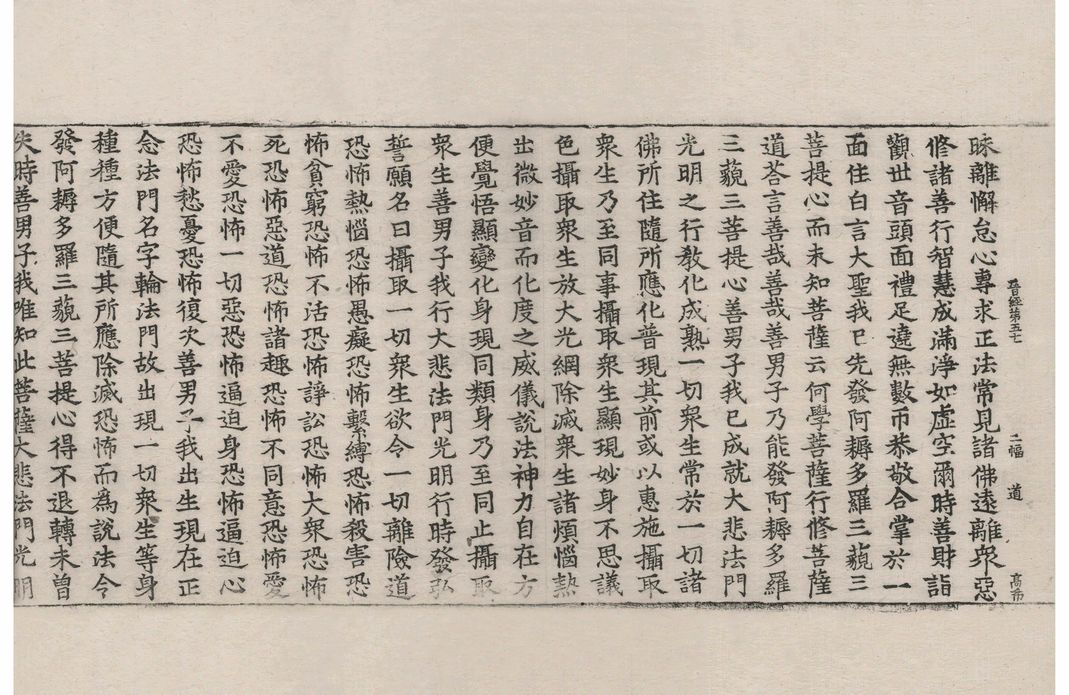 晉經第五十七 二幅 道 高希
昧離懈怠心專求正法常見諸佛遠離衆惡
修諸善行智慧成滿淨如虛空爾時善財詣
觀世音頭面禮足遶無數帀恭敬合掌於一
面住白言大聖我已先發阿耨多羅三藐三
菩提心而未知菩薩云何學菩薩行修菩薩
道荅言善哉善哉善男子乃能發阿耨多羅
三藐三菩提心善男子我已成就大悲法門
光明之行教化成熟一切衆生常於一切諸
佛所住隨所應化普現其前或以惠施攝取
衆生乃至同事攝取衆生顯現妙身不思議
色攝取衆生放大光網除滅衆生諸煩惱熱
出微妙音而化度之威儀說法神力自在方
便覺悟顯變化身現同類身乃至同止攝取
衆生善男子我行大悲法門光明行時發弘
誓願名曰攝取一切衆生欲令一切離險道
恐怖熱惱恐怖愚癡恐怖繫縛恐怖殺害恐
怖貧窮恐怖不活恐怖諍訟恐怖大衆恐怖
死恐怖惡道恐怖諸趣恐怖不同意恐怖愛
不愛恐怖一切惡恐怖逼迫身恐怖逼迫心
恐怖愁憂恐怖復次善男子我出生現在正
念法門名字輪法門故出現一切衆生等身
種種方便隨其所應除滅恐怖而爲說法令
發阿耨多羅三藐三菩提心得不退轉未曾
失時善男子我唯知此菩薩大悲法門光明